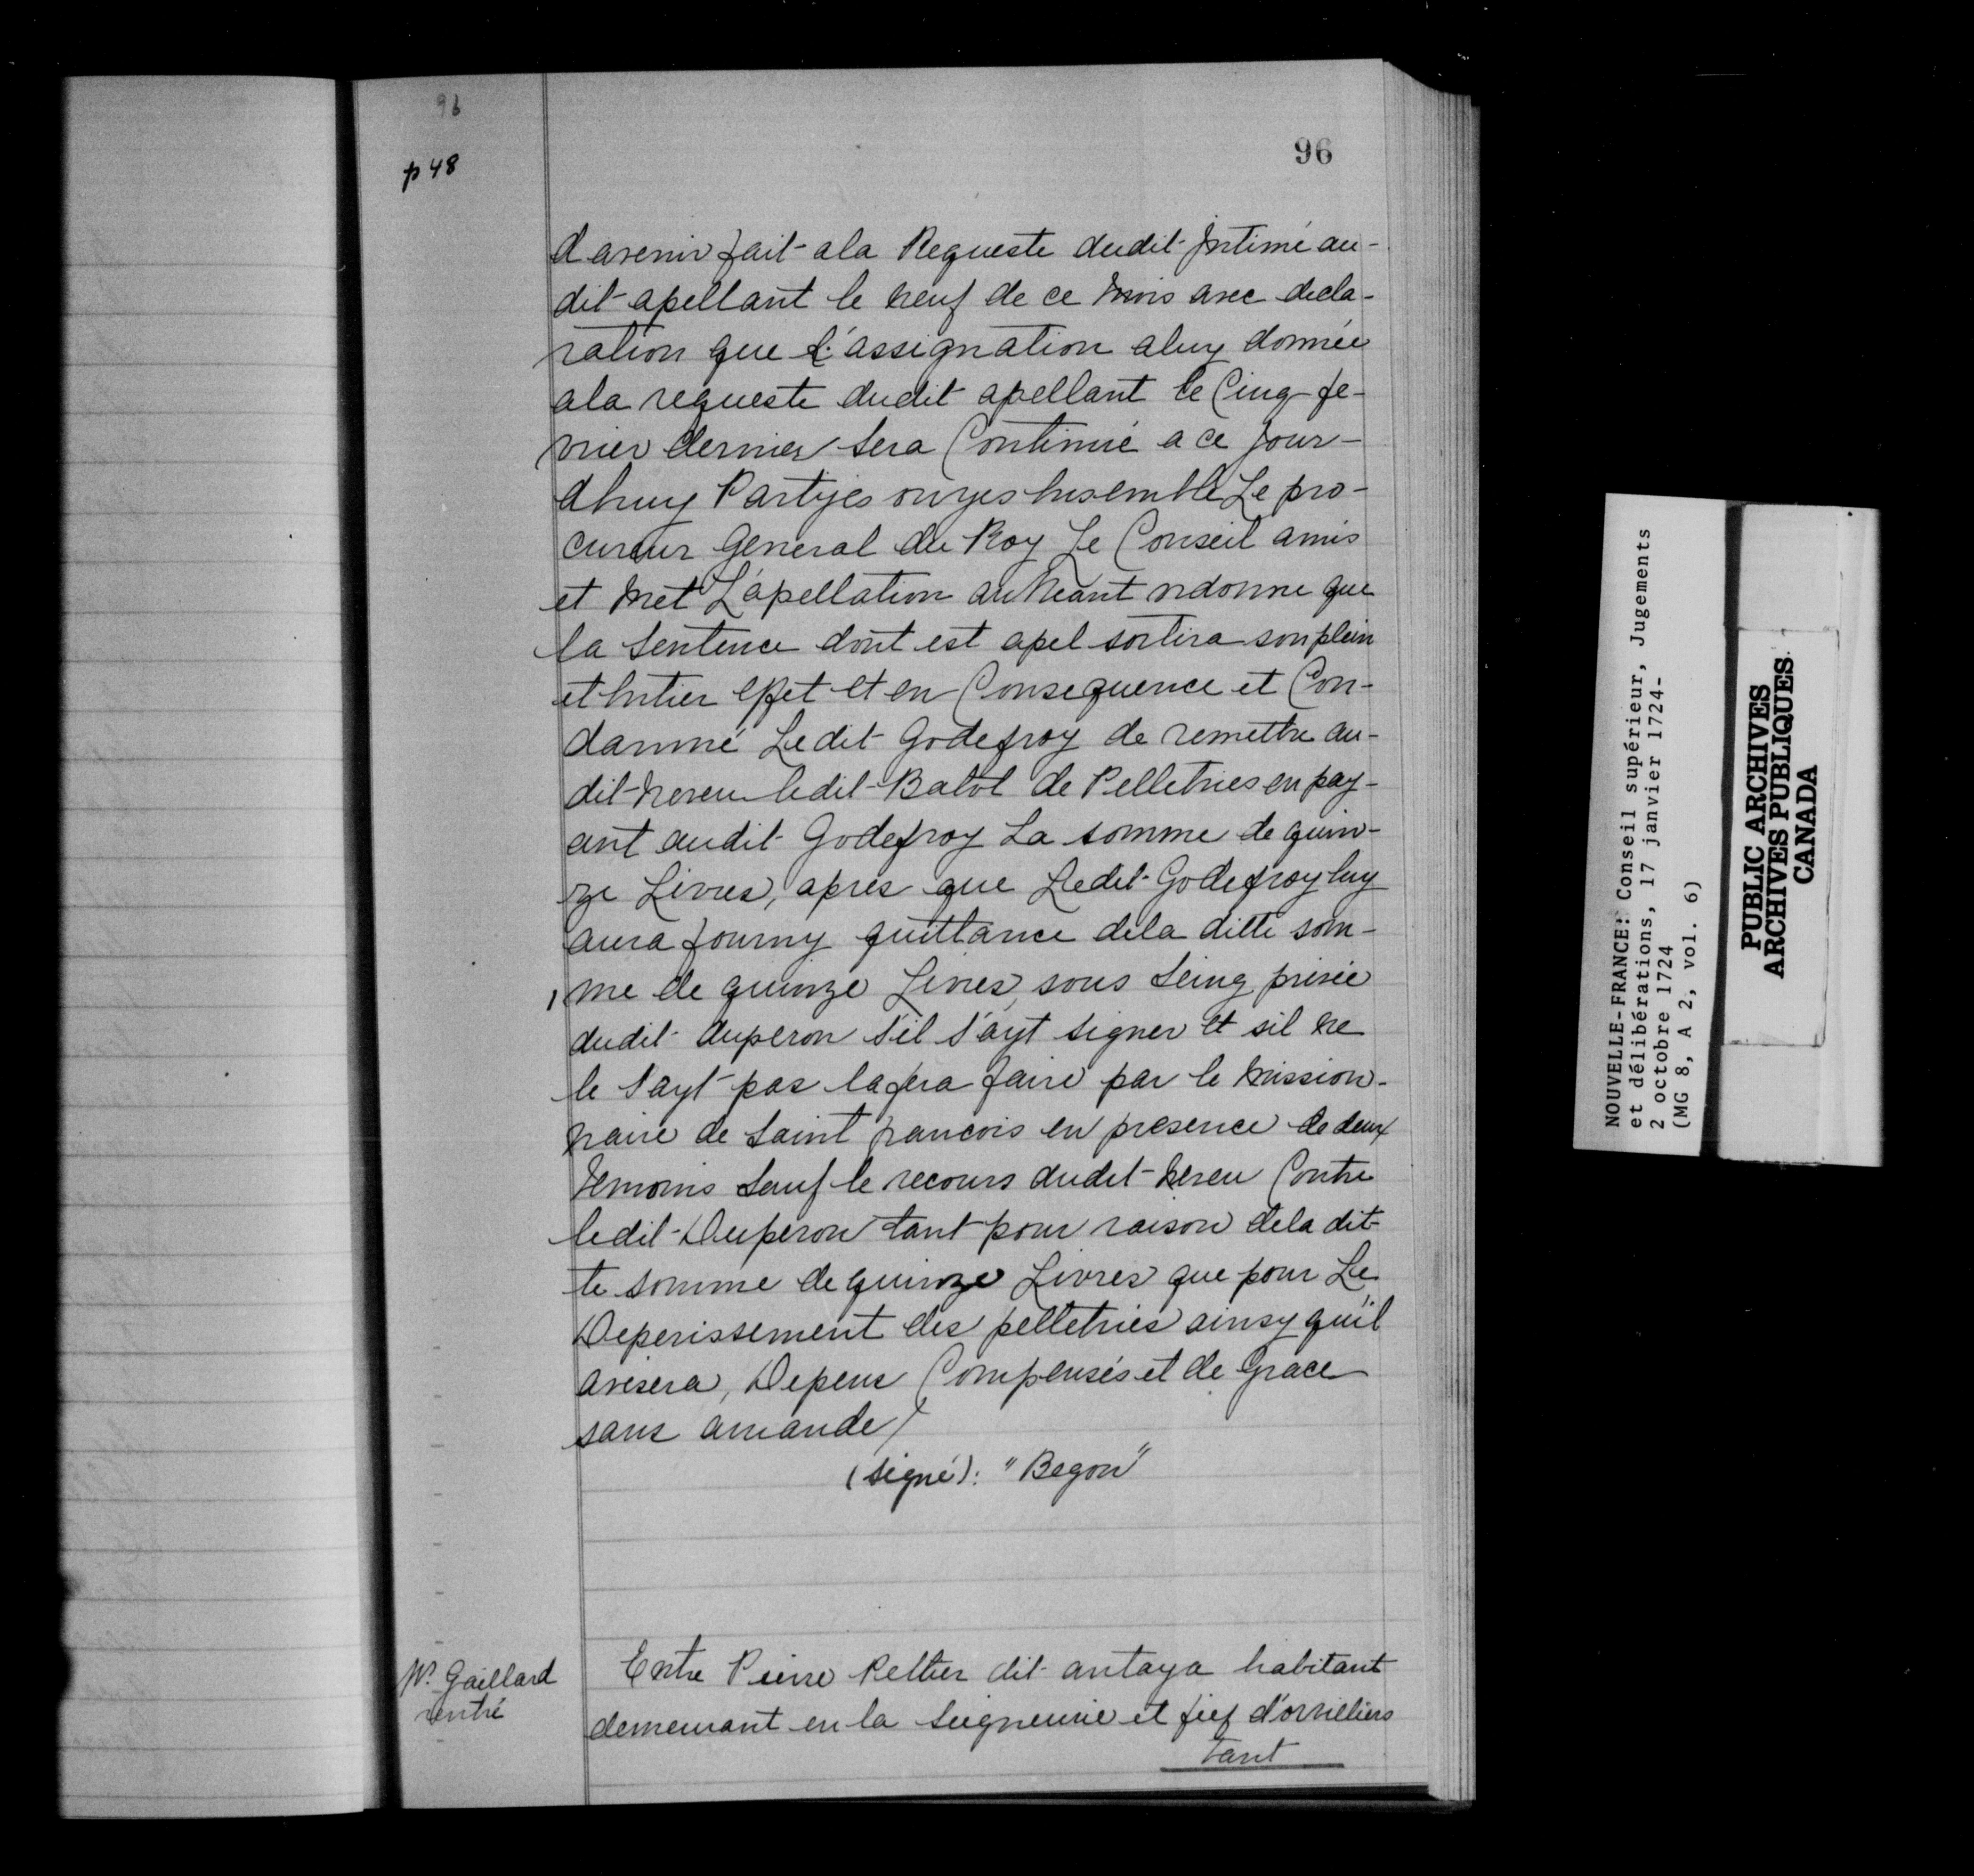 96
p 48
96
davenir fait ala Requeste dudit Intimé au-
dit apellant le neuf de ce mois avec decla-
ration que L'assignation aluy donnée
ala requeste dudit apellant le Cinq fe-
vrier dernier sera Continué a ce jour-
dhuy Partyes ouyes Ensemble Le pro-
cureur General du Roy Le Conseil amis
et met L'apellation au Neant ordonne que
la sentence dont est apel sortira son plein
et Entier effet et en Consequence et Con-
damné Ledit Godefroy de remettre au-
dit Neveu ledit Balot de Pelletries en pay-
ant audit Godefroy La somme de quin-
ze Livres, apres que Ledit Godefroy luy
aura fourny quittance dela ditte som-
me de quinze Livres, sous seing privée
dudit duperon s'il s'ayt signer et sil ne
le sayt pas lafera faire par le mission-
naire de saint francois en presence de deux
temoins sauf le recours dudit Neveu Contre
ledit Duperon tant pour raison dela dit-
te somme de quinze Livres que pour Le
Deperissement des pelletries ainsy qu'il
avisera, Depens Compensés et de Grace
sans amande/
(signé): "Begon"
Mr. Gaillard
rentré
Entre Pierre Peltier dit antaya habitant
demeurant en la seigneurie et fief d'orvilliers
tant
NOUVELLE-FRANCE: Conseil supérieur, Jugements
et délibérations, 17 janvier 1724-
2 octobre 1724
(MG 8, A 2, vol. 6)
PUBLIC ARCHIVES
ARCHIVES PUBLIQUES
CANADA